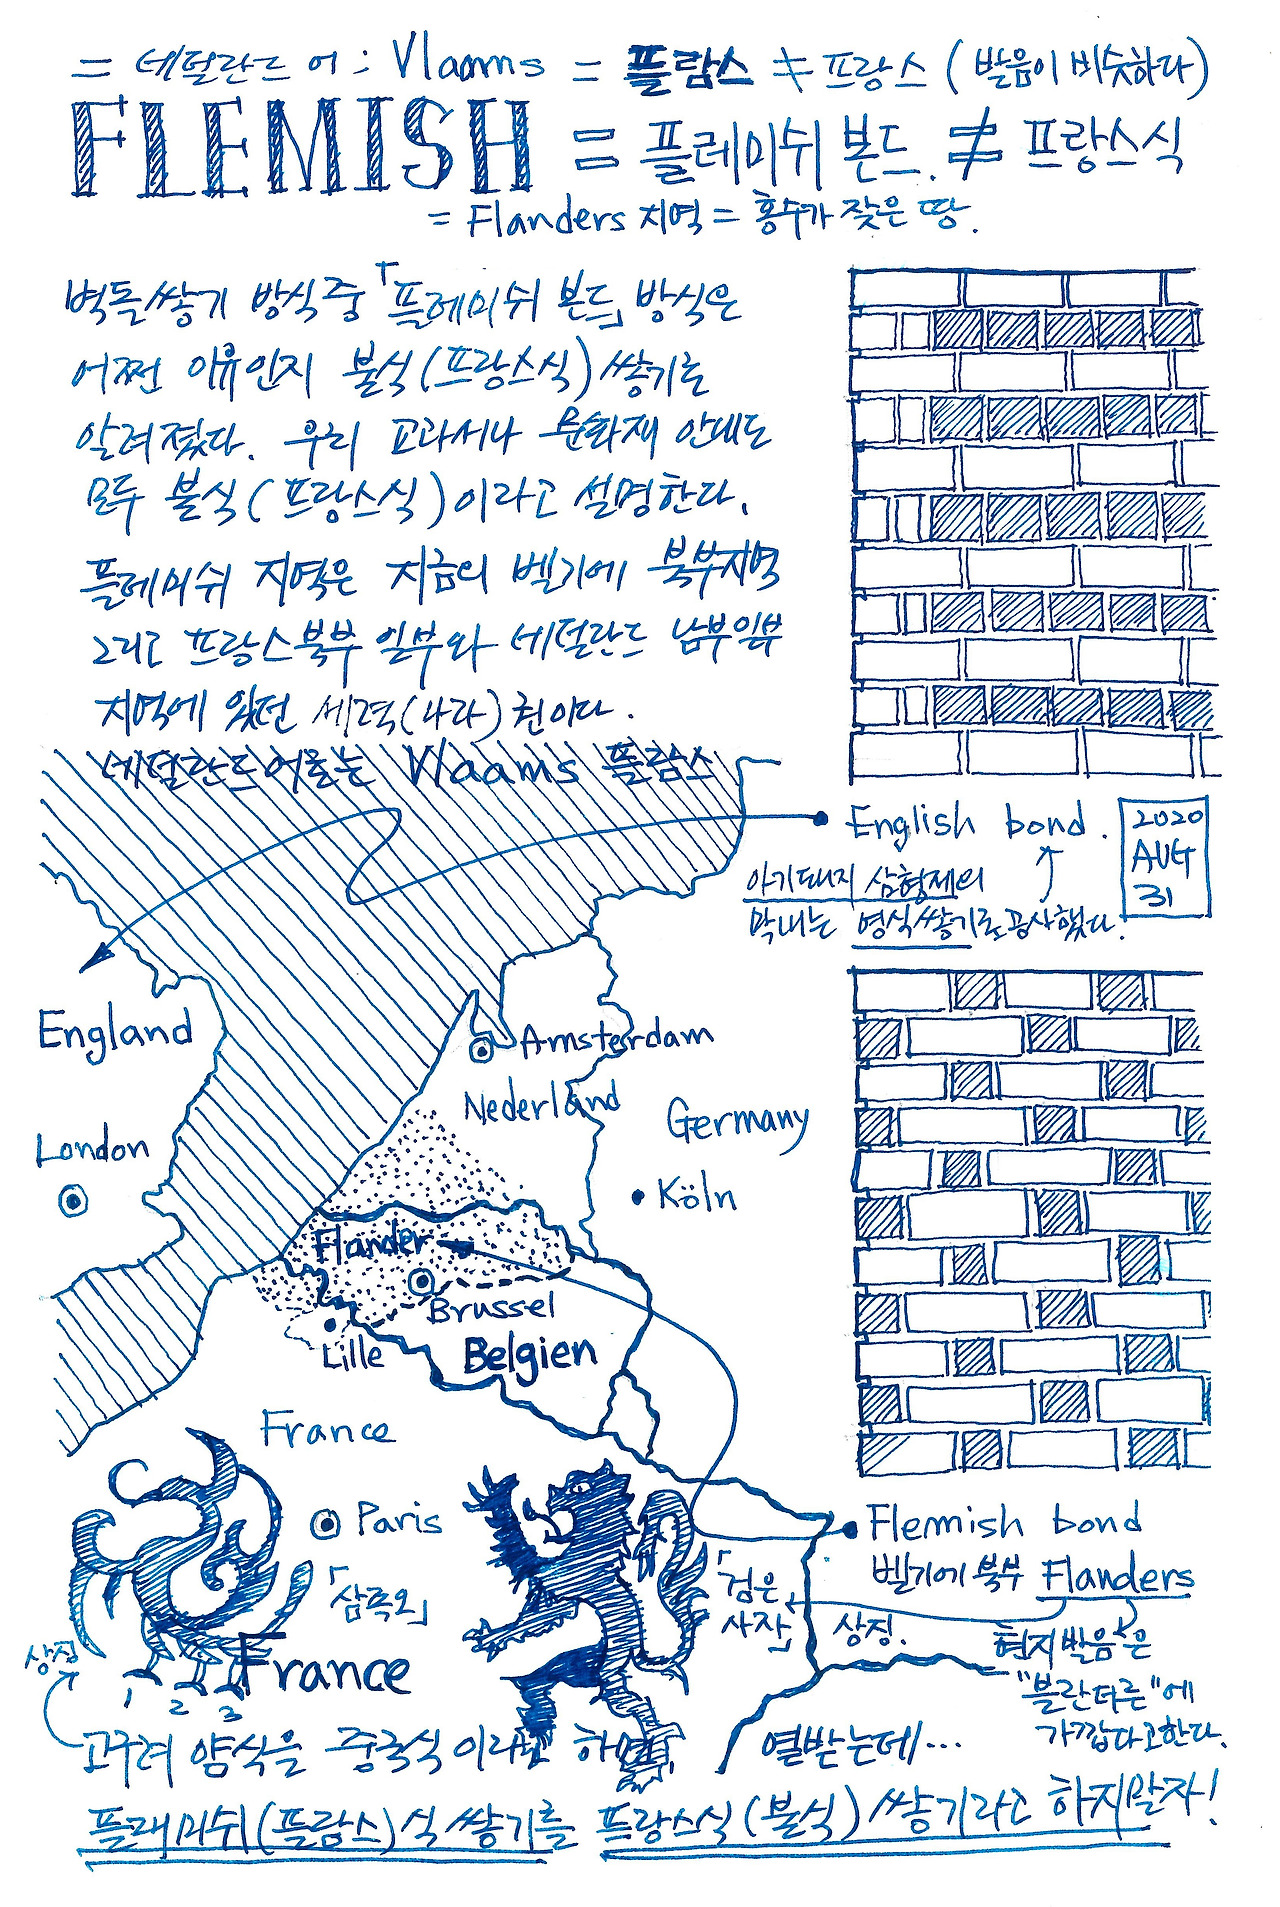 = 네덜란드 어 : Vlaams = 플람스 ≠ 프랑스 (발음이 비슷하다)
FLEMISH = 플레미쉬 본드. ≠ 프랑스식
= Flanders 지역 = 홍수가 잦은 땅.
벽돌쌓기 방식중 「플레미쉬 본드」 방식은
어쩐 이유인지 불식(프랑스식)쌓기로
알려졌다. 우리 교과서나 문화재 안내도
모두 불식(프랑스식)이라고 설명한다.
플레미쉬 지역은 지금의 벨기에 북부지역
그리고 프랑스북부 일부와 네덜란드 남부일부
지역에 있던 세력(나라)권이다.
네덜란드어로는 Vlaams 플람스
English bond.
2020
AUG
31
아기돼지 삼형제의
막내는 영식쌓기로 공사했다.
England
Amsterdam
Nederland
Germany
London
Köln
Flander
Brussel
Lille
Belgien
France
Paris
「삼족오」
상징
1 2 3
France
「검은
사자」
상징.
Flemish bond
벨기에 북부 Flanders
현지발음은
"블란더른"에
가깝다고한다.
고구려 양식을 중국식 이라고 하면, 열받는데...
플래미쉬(플람스)식 쌓기를 프랑스식(불식)쌓기라고 하지말자!